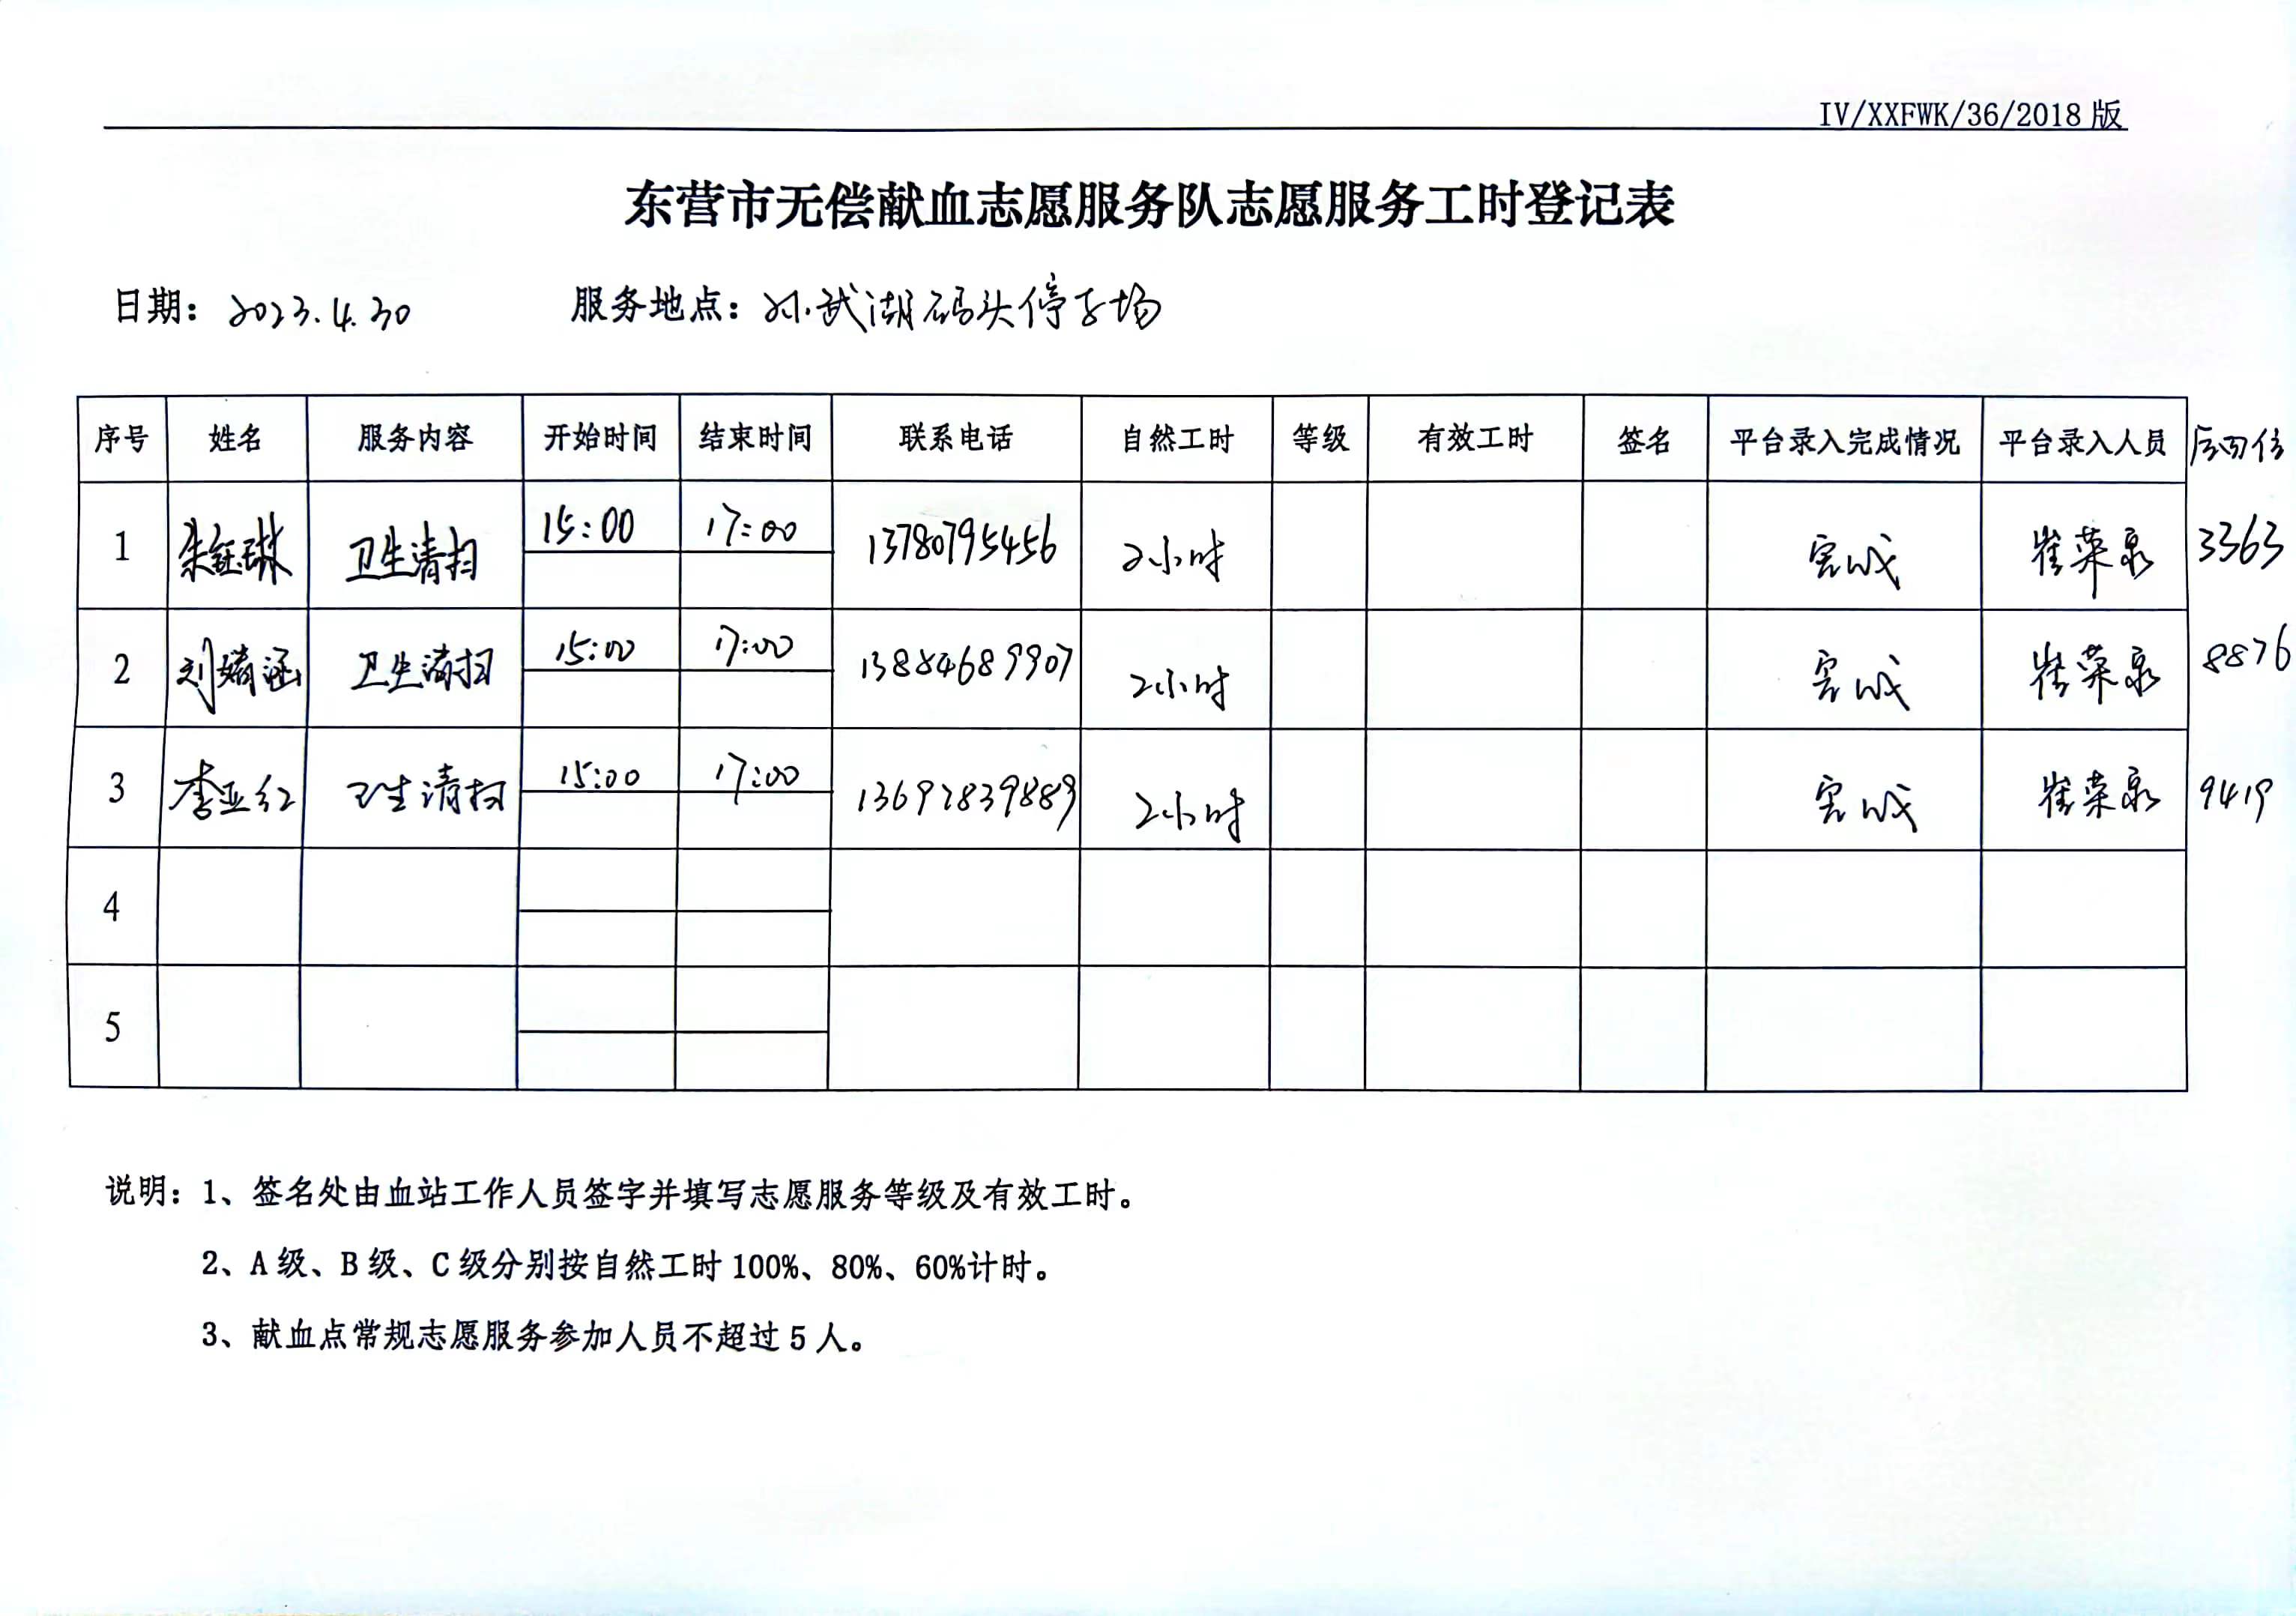 IV/XXFWK/36/2018 版
东营市无偿献血志愿服务队志愿服务工时登记表
日期：2023.4.30 服务地点：孙武湖码头停车场
序号 姓名 服务内容 开始时间 结束时间 联系电话 自然工时 等级 有效工时 签名 平台录入完成情况 平台录入人员 后四位
1 朱钰琳 卫生清扫 15:00 17:00 13780795456 2小时 完成 崔荣泉 3363
2 刘婧涵 卫生清扫 15:00 17:00 13884689907 2小时 完成 崔荣泉 8876
3 李亚红 卫生清扫 15:00 17:00 13692839889 2小时 完成 崔荣泉 9419
4
5
说明：1、签名处由血站工作人员签字并填写志愿服务等级及有效工时。
2、A 级、B 级、C 级分别按自然工时 100%、80%、60%计时。
3、献血点常规志愿服务参加人员不超过 5 人。